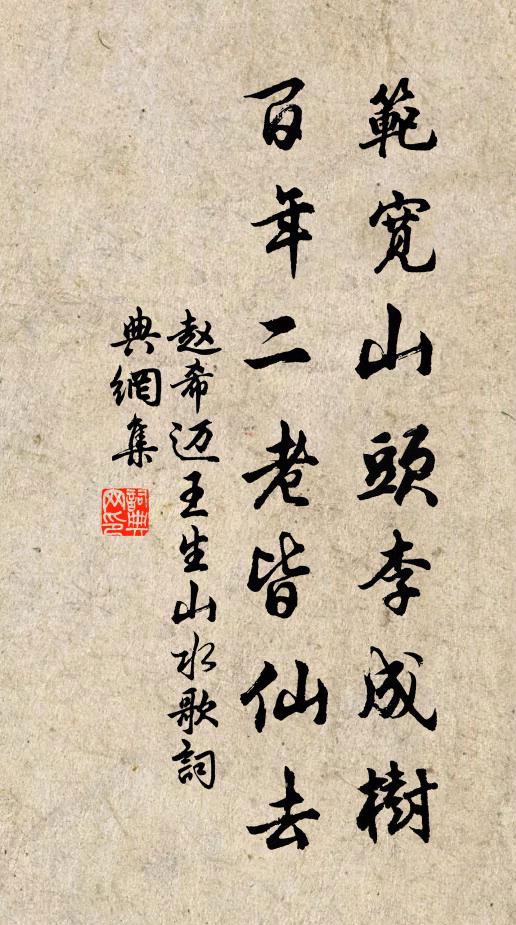 範寬山頭李成樹
百年二老皆仙去
赵希迈王生山水歌詞
典網集
詞典
网印